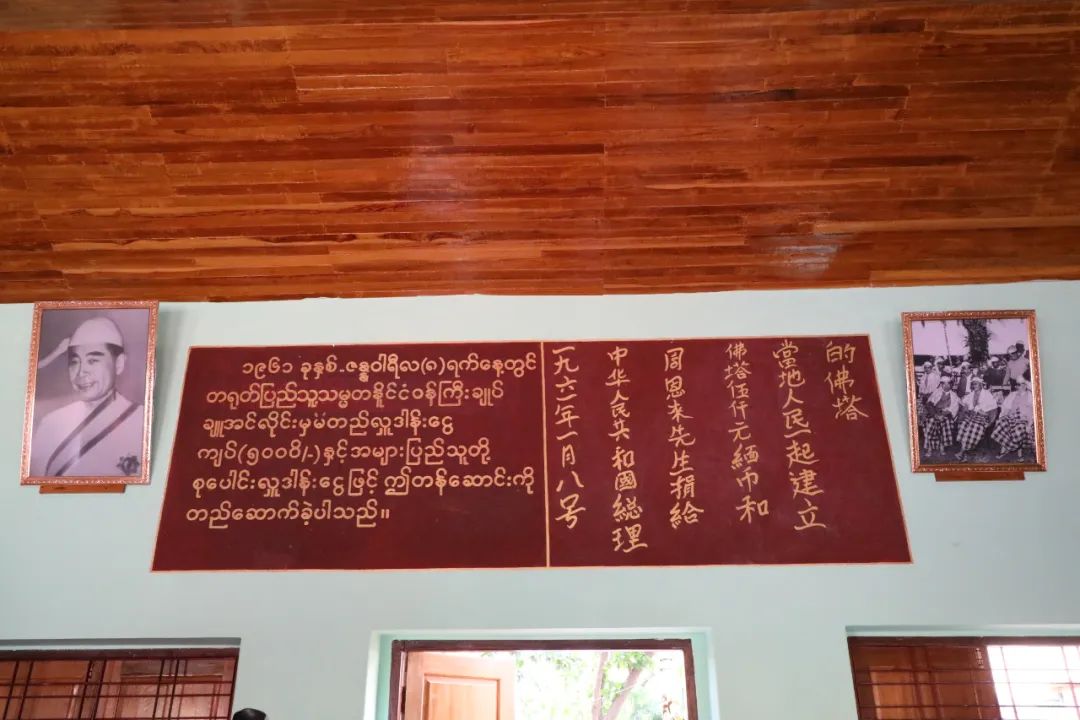 ၁၉၆၁ ခုနှစ်.ဇန္နဝါရီလ(၈)ရက်နေ့တွင်
တရုတ်ပြည်သူ့သမ္မတနိူင်ငံဝန်ကြီးချုပ်
ချူအင်လိုင်းမှမံမံတည်လှူဒါန်းငွေ
ကျပ်(၅၀၀ဝိ/.)နှင့်အများပြည်သူတို့
စုပေါင်းလှူဒါန်းငွေဖြင့် ဤတန်ဆောင်းကို
တည်ဆောက်ခဲ့ပါသည်။
一九六一年一月八号
中华人民共和國総理
周恩来先生捐給
佛塔伍仟元緬币和
當地人民一起建立
的佛塔